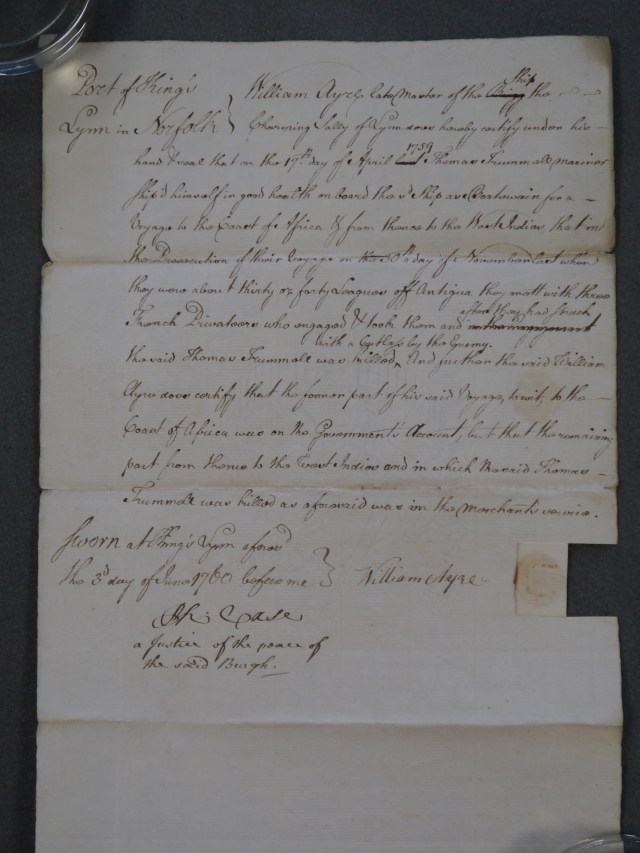 Port of King's
Lynn in Norfolk }
William Ayre late Master of the Brigg Ship the
Charming Sally of Lynn does hereby certify under his
hand & seal that on the 17th day of April last 1759 Thomas Trummell Mariner
Ship'd himself in good health on board the sd Ship as Boatswain for a
Voyage to the Coast of Africa & from thence to the West Indies, that in
the Prosecution of their Voyage on the day of November last when
they were about thirty or forty Leagues off Antigua they mett with three
French Privateers who engaged & took them and in the Engagement after they had struck
the said Thomas Trummell was killed with a Cutlass by the Enemy. And further the said William
Ayre does certify that the former part of his said Voyage, to wit, to the
Coast of Africa was on the Government's Account, but that the remaining
part from thence to the West Indies and in which the said Thomas
Trummell was killed as aforesaid was in the Merchants service.
Sworn at King's Lynn aforesd
the 3d day of June 1760 before me } William Ayre
Case
a Justice of the peace of
the said Burgh.